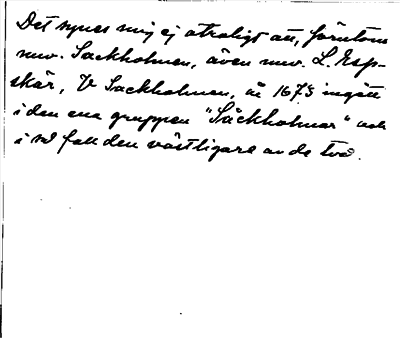 Det synes mig ej otroligt att, förutom
nuv. Sackholmen, även nuv. L. Esp-
skär, V Sackholmen, är 1673 ingått
i den ena gruppen "Säckholmar" och
i så fall den västligare av de två.